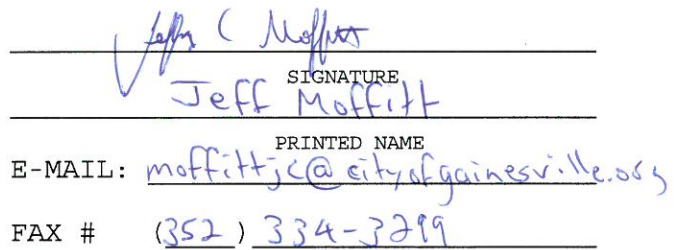 Jeffrey C Moffitt
SIGNATURE
Jeff Moffitt
PRINTED NAME
E-MAIL: moffittjc@cityofgainesville.org
FAX # (352) 334-3299